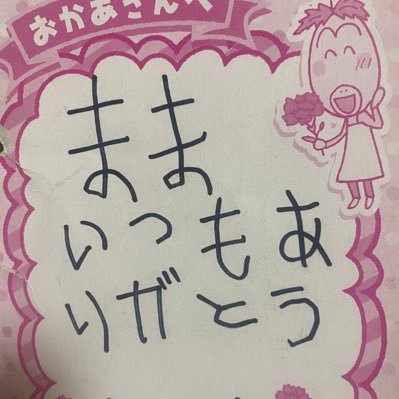 おかあさんへ
まま
いつもあ
りがとう